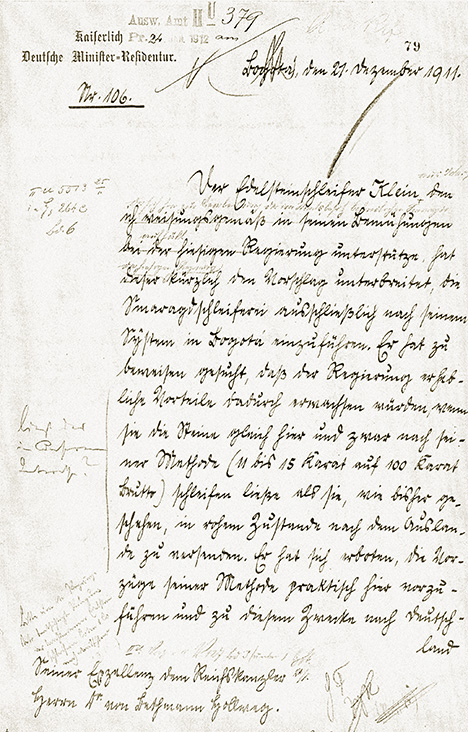 Ausw. Amt II U 379
Kaiserlich
Deutsche Minister-Residentur.
pr. 24 1912 am
79
Nr. 106.
Bogotá, den 21. Dezember 1911.
Der Edelsteinschleifer Klein, den
ich weisungsgemäß in seinen Bemühungen
bei der hiesigen Regierung unterstütze, hat
dieser kürzlich den Vorschlag unterbreitet, die
Smaragdschleiferei ausschließlich nach seinem
System in Bogotá einzuführen. Er hat zu
beweisen gesucht, daß der Regierung erheb-
liche Vorteile dadurch erwachsen würden, wenn
sie die Steine gleich hier und zwar nach sei-
ner Methode (11 bis 15 Karat auf 100 Karat
brutto) schleifen ließe als sie, wie bisher ge-
schehen, in rohem Zustande nach dem Auslan-
de zu versenden. Er hat sich erboten, die Vor-
züge seiner Methode praktisch hier vorzu-
führen und zu diesem Zwecke nach Deutsch-
land
Seiner Exzellenz dem Reichskanzler
Herrn Dr von Bethmann Hollweg.